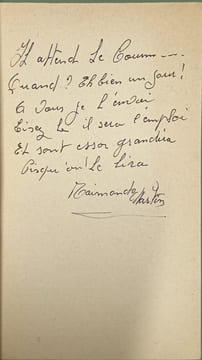 Il attend Le Coum---
Quand? Eh bien un jour!
A vous je l'envoi
Lisez le il sera l'emploi
Et sont essor grandira
Pisqu'on Le lira
Raimonde Martin